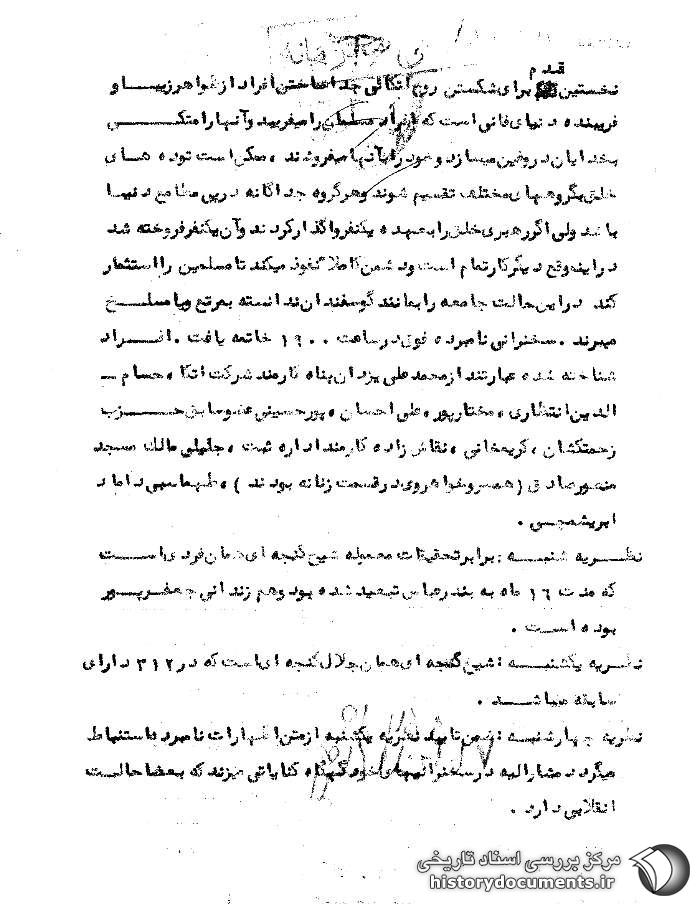 قدم
نخستین برای شکستن روح اتکالی جدا ساختن افراد از ظواهر زیبا و
فریبنده دنیای فانی است که افراد مسلمان را میفریبد و آنها را متکی
بخدایان دروغین میسازد و خود را بآنها میفروشند ، ممکن است توده های
خلق بگروههای مختلف تقسیم شوند و هر گروه جداگانه در پی مطامع دنیا
باشد ولی اگر رهبری خلق را بعهده یکنفر واگذار کردند و آن یکنفر فروخته شد
در اینموقع دیگر کار تمام است و دشمن کاملا نفوذ میکند تا مسلمین را استثمار
کند در این حالت جامعه را بمانند گوسفندان ندانسته بمرتع و یا مسلخ
میبرند . سخنرانی نامبرده فوق در ساعت ۱۹۰۰ خاتمه یافت . افراد
شناخته شده عبارتند از محمدعلی یزدان پناه کارمند شرکت اتکا ، حسام ـ
الدین انتظاری ، مختارپور ، علی احسان ، پورحسینی عضو سابق حزب
زحمتکشان ، کریمخانی ، نقاش زاده کارمند اداره ثبت ، جلیلی مالک مسجد
منصور صادق ( همسر و خواهر وی در قسمت زنانه بودند ) ، طهماسبی داماد
ابریشمچی .
نظریه شنبه : برابر تحقیقات معموله شیخ گنجه ای همان فردی است
که مدت ۱۶ ماه به بندرعباس تبعید شده بود و هم زندانی جعفرپور
بوده است .
نظریه یکشنبه : شیخ گنجه ای همان جلال گنجه ای است که در ۳۱۲ دارای
سابقه میباشد .
نظریه چهارشنبه : ضمن تایید نظریه یکشنبه از متن اظهارات نامبرده استنباط
میگردد مشارالیه در سخنرانیهای خود گهگاه کنایاتی میزند که بعضا حالت
انقلابی دارد .
مرکز بررسی اسناد تاریخی
historydocuments.ir